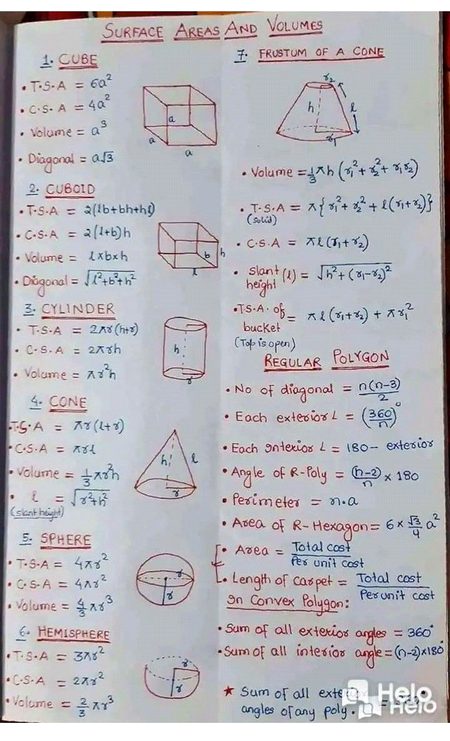 SURFACE AREAS AND VOLUMES
1. CUBE
• T.S.A = 6a²
• C.S.A = 4a²
• Volume = a³
• Diagonal = a√3
a
a
a
2. CUBOID
• T.S.A = 2(lb+bh+hl)
• C.S.A = 2(l+b)h
• Volume = l×b×h
• Diagonal = √l²+b²+h²
h
b
l
3. CYLINDER
• T.S.A = 2πr(h+r)
• C.S.A = 2πrh
• Volume = πr²h
h
r
4. CONE
• T.S.A = πr(l+r)
• C.S.A = πrl
• Volume = 1/3 πr²h
• l = √r²+h²
(slant height)
h
l
r
5. SPHERE
• T.S.A = 4πr²
• C.S.A = 4πr²
• Volume = 4/3 πr³
r
r
6. HEMISPHERE
• T.S.A = 3πr²
• C.S.A = 2πr²
• Volume = 2/3 πr³
r
r
7. FRUSTUM OF A CONE
r₂
h
l
r₁
• Volume = 1/3 πh (r₁²+r₂²+r₁r₂)
• T.S.A = π{r₁²+r₂²+l(r₁+r₂)}
(solid)
• C.S.A = πl(r₁+r₂)
• slant (l) = √h²+(r₁-r₂)²
height
• T.S.A of = πl(r₁+r₂) + πr₁²
bucket
(Top is open)
REGULAR POLYGON
• No of diagonal = n(n-3)/2
• Each exterior L = (360/n)°
• Each interior L = 180 - exterior
• Angle of R-Poly = (n-2)/n × 180
• Perimeter = n.a
• Area of R-Hexagon = 6 × √3/4 a²
• Area = Total cost/Per unit cost
• Length of carpet = Total cost/Per unit cost
In Convex Polygon:
• Sum of all exterior angles = 360°
• Sum of all interior angle = (n-2)×180°
★ Sum of all
angles of any poly.
Helo
Helo